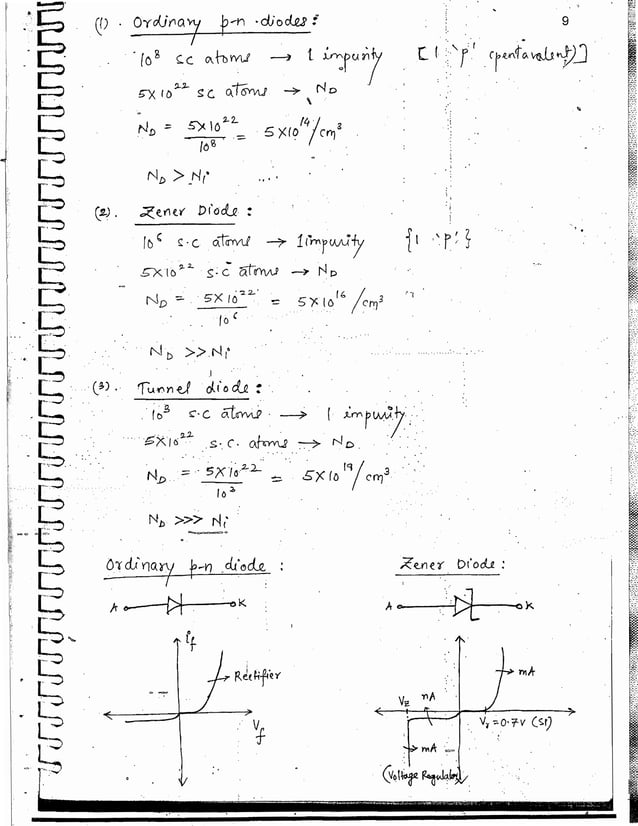 9
(1). Ordinary p-n diodes:
10⁸ sc atoms → 1 impurity [1 'p' (pentavalent)]
5×10²² sc atoms → N_D
N_D = 5×10²²/10⁸ = 5×10¹⁴/cm³
N_D > Ni ....
(2). Zener Diode:
10⁶ s.c atoms → 1 impurity {1 'p'}
5×10²² s.c atoms → N_D
N_D = 5×10²²/10⁶ = 5×10¹⁶/cm³
N_D >> Ni
(3). Tunnel diode:
10³ s.c atoms → 1 impurity
5×10²² s.c. atoms → N_D
N_D = 5×10²²/10³ = 5×10¹⁹/cm³
N_D >>> Ni
Ordinary p-n diode : Zener Diode :
A K A K
i_f
Rectifier mA
V_Z nA
V_f V_γ = 0.7V (Si)
mA
(Voltage Regulator)